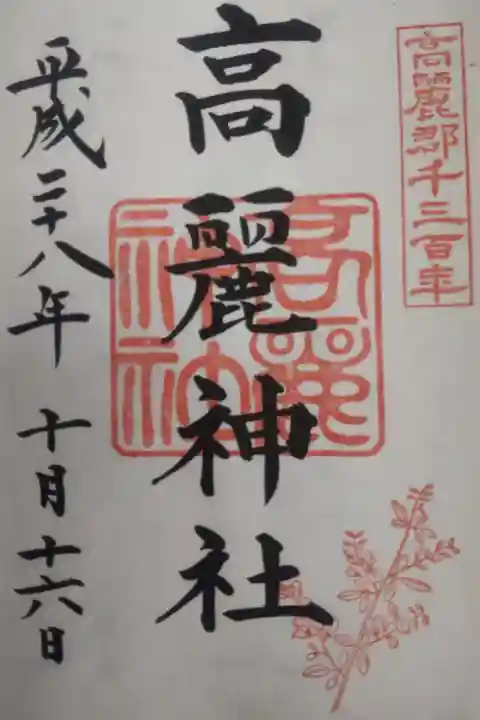 高麗郡千三百年
高麗神社
高麗神社
平成二十八年 十月十六日